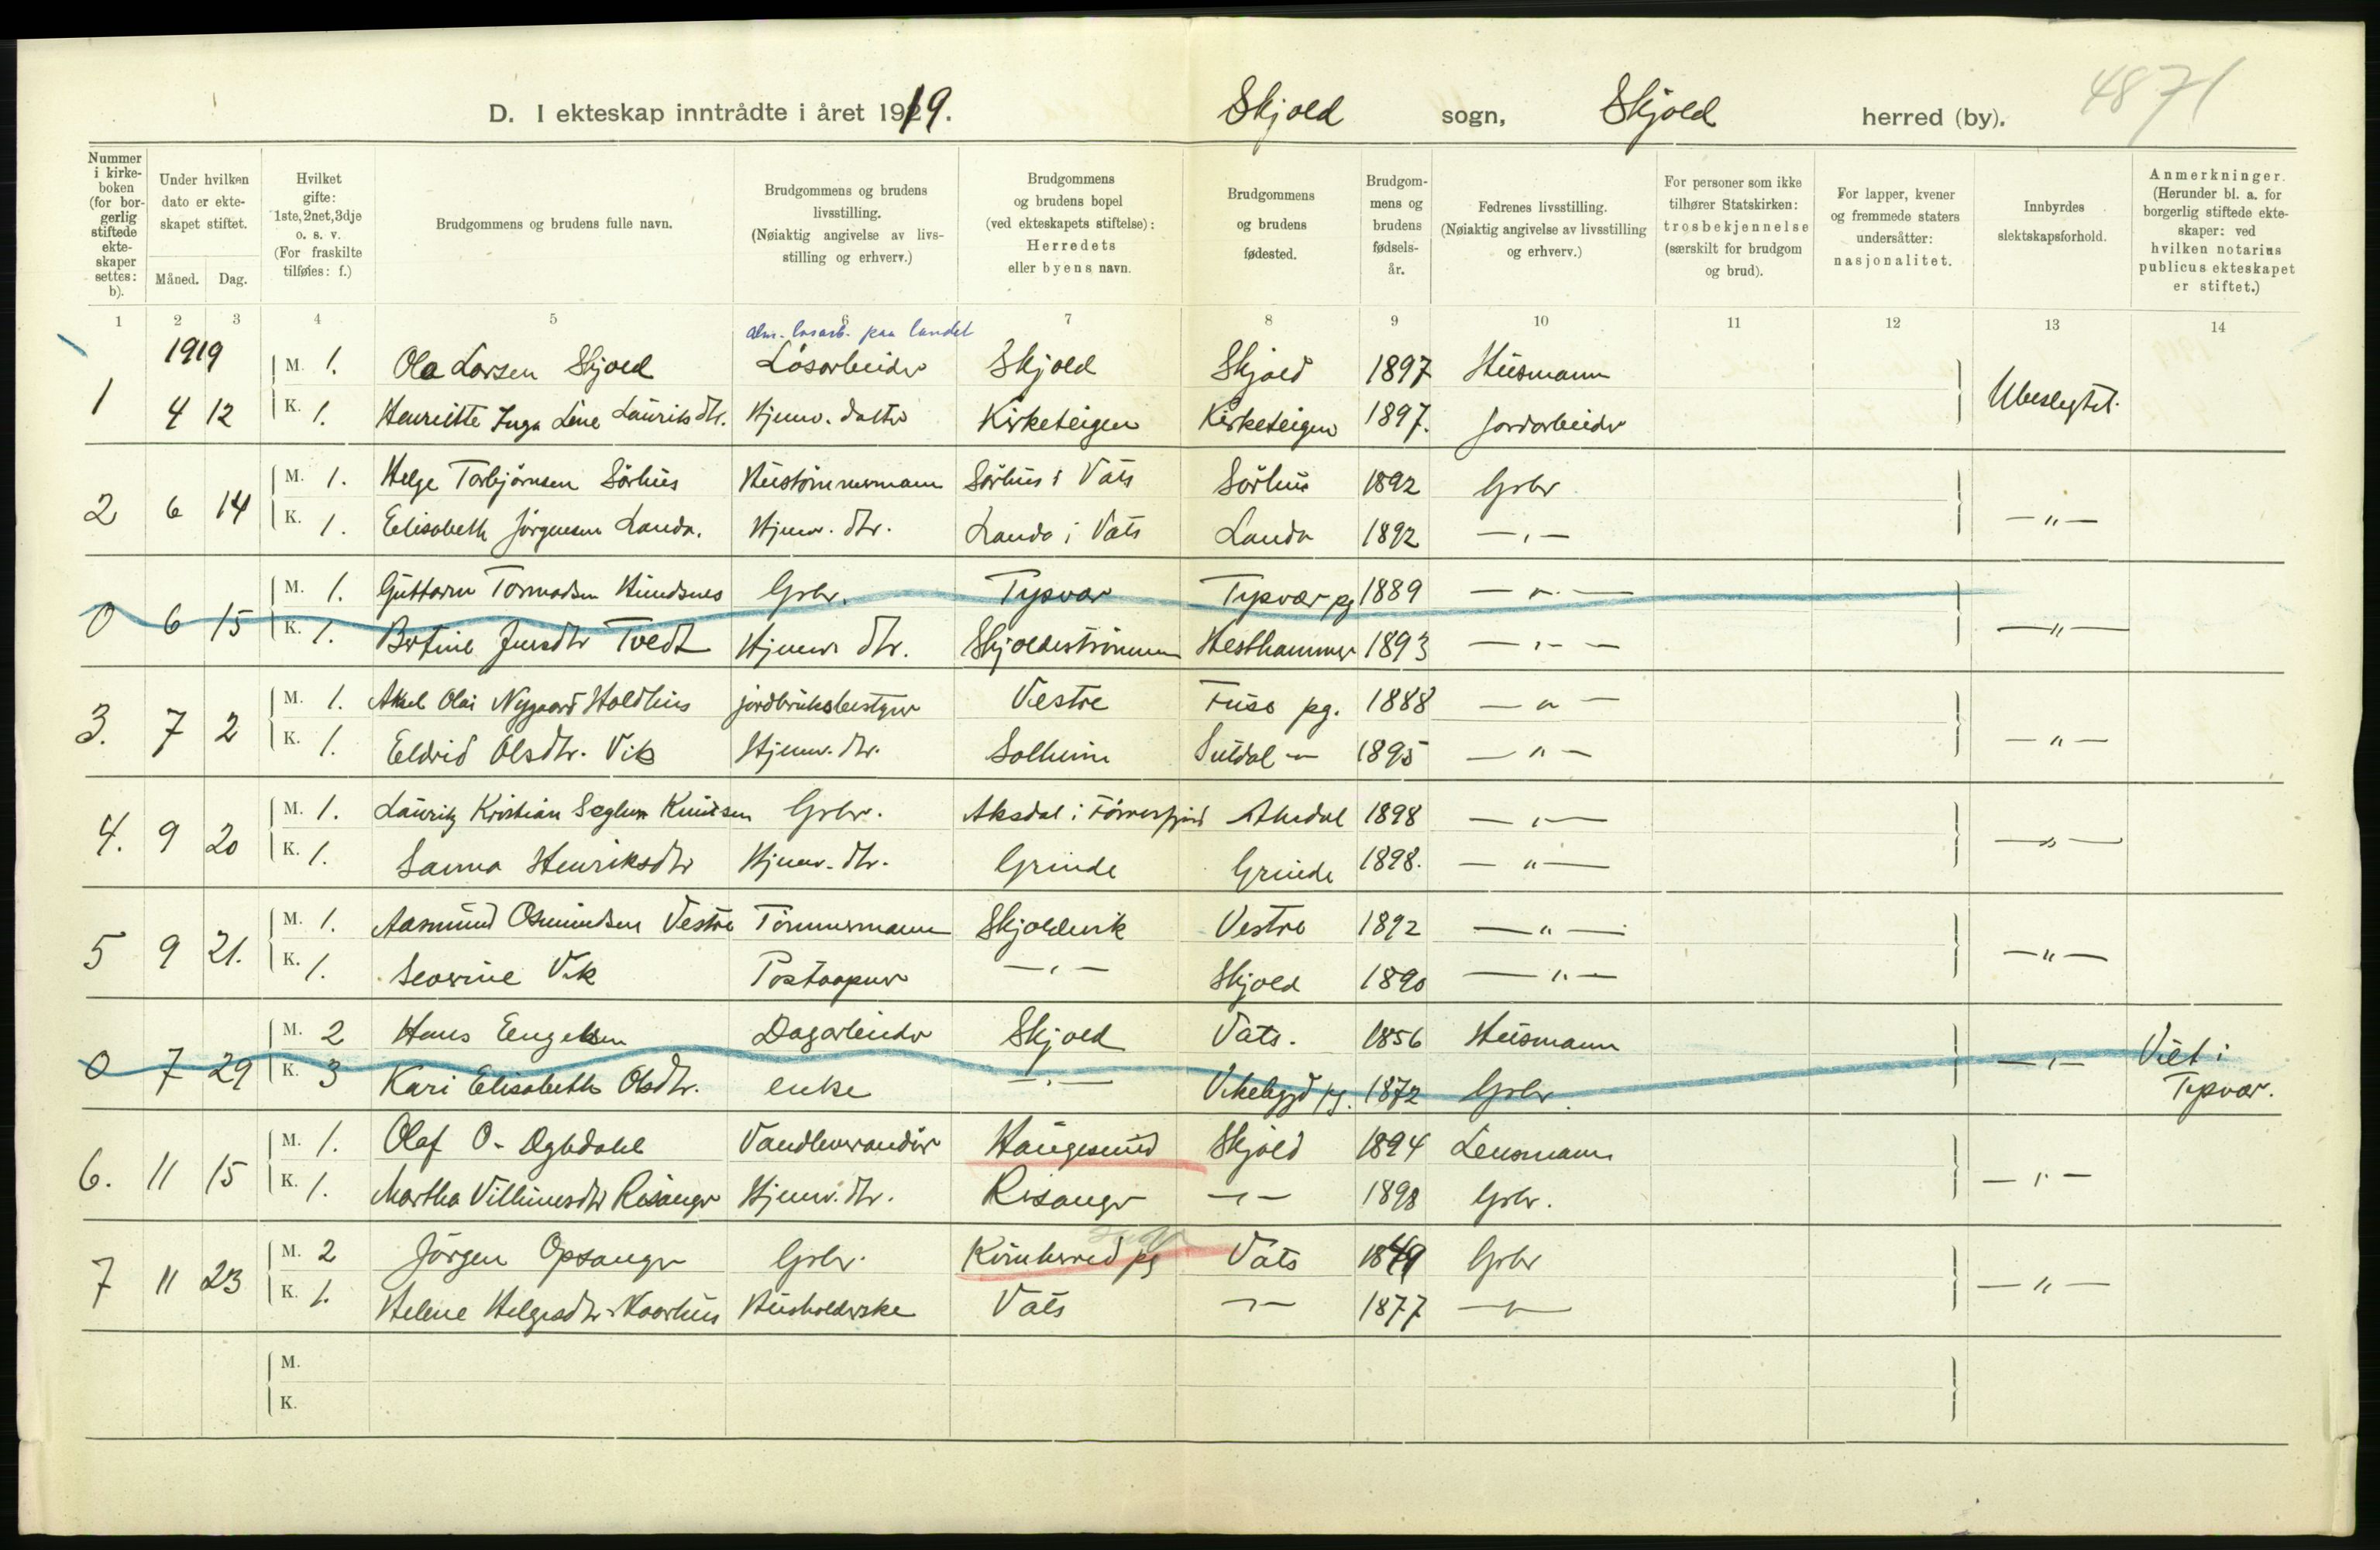 4871
D. I ekteskap inntrådte i året 1919. Skjold sogn, Skjold herred (by).
Nummer i kirkeboken (for borgerlig stiftede ekteskaper settes: b).
Under hvilken dato er ekteskapet stiftet.
Måned. Dag.
Hvilket gifte: 1ste, 2net, 3dje o. s. v. (For fraskilte tilføies: f.)
Brudgommens og brudens fulle navn.
Brudgommens og brudens livsstilling. (Nøiaktig angivelse av livsstilling og erhverv.)
Brudgommens og brudens bopel (ved ekteskapets stiftelse): Herredets eller byens navn.
Brudgommens og brudens fødested.
Brudgommens og brudens fødselsår.
Fedrenes livsstilling. (Nøiaktig angivelse av livsstilling og erhverv.)
For personer som ikke tilhører Statskirken: trosbekjennelse (særskilt for brudgom og brud).
For lapper, kvener og fremmede staters undersåtter: nasjonalitet.
Innbyrdes slektskapsforhold.
Anmerkninger. (Herunder bl. a. for borgerlig stiftede ekteskaper: ved hvilken notarius publicus ekteskapet er stiftet.)
1 2 3 4 5 6 7 8 9 10 11 12 13 14
1919 alm. løsarb. paa landet
M. 1. Ola Larsen Skjold Løsarbeider Skjold Skjold 1897 Husmann
1 4 12 K. 1. Henriette Inga Line Lauritsdtr. Hjemv. datter Kirketeigen Kirketeigen 1897. Jordarbeider Ubeslegtet.
M. 1. Helge Torbjørnsen Sørhus Hustømmermann Sørhus i Vats Sørhus 1892 Grbr
2 6 14 K. 1. Elisabeth Jørgensen Landa. Hjemv. dtr. Landa i Vats Landa 1892 — " — — " —
M. 1. Guttorm Tormodsen Hundsnes Grbr. Tysvær Tysvær pg 1889 — " —
0 6 15 K. 1. Bertine Jensdtr Tvedt Hjemv. dtr. Skjoldestrømmen Hesthammer 1893 — " — — " —
M. 1. Aksel Olai Nygaard Holdhus jordbruksbestyrer Vestre Fuse pg. 1888 — " —
3. 7 2 K. 1. Eldrid Olsdtr. Vik Hjemv. dtr. Solheim Suldal — 1895 — " — — " —
M. 1. Lauritz Kristian Seglem Knutsen Grbr. Aksdal i Førresfjord Aksdal 1898 — " —
4. 9 20 K. 1. Sanna Henriksdtr Hjemv. dtr. Grinde Grinde 1898. — " — — " —
M. 1. Aasmund Osmundsen Vestre Tømmermann Skjoldevik Vestre 1892 — " —
5 9 21. K. 1. Severine Vik Postaapner — " — Skjold 1890 — " — — " —
M. 2 Hans Engelsen Dagarbeider Skjold Vats. 1856 Husmann
0 7 29 K. 3 Kari Elisabeth Olsdtr. enke — " — Vikebygd pg. 1872 Grbr. — " — Viet i Tysvær.
M. 1. Olaf O. Ogbdahl Vandleverandør Haugesund Skjold 1894 Lensmann
6. 11 15 K. 1. Martha Villumsdtr Risanger Hjemv. dtr. Risanger — " — 1898 Grbr. — " —
M. 2 Jørgen Opsanger Grbr. Kvinherred pg Vats 1849 Grbr
7 11 23 K. 1. Helene Helgesdtr Kaarhus Husholderske Vats — " — 1877 — " — — " —
M.
K.